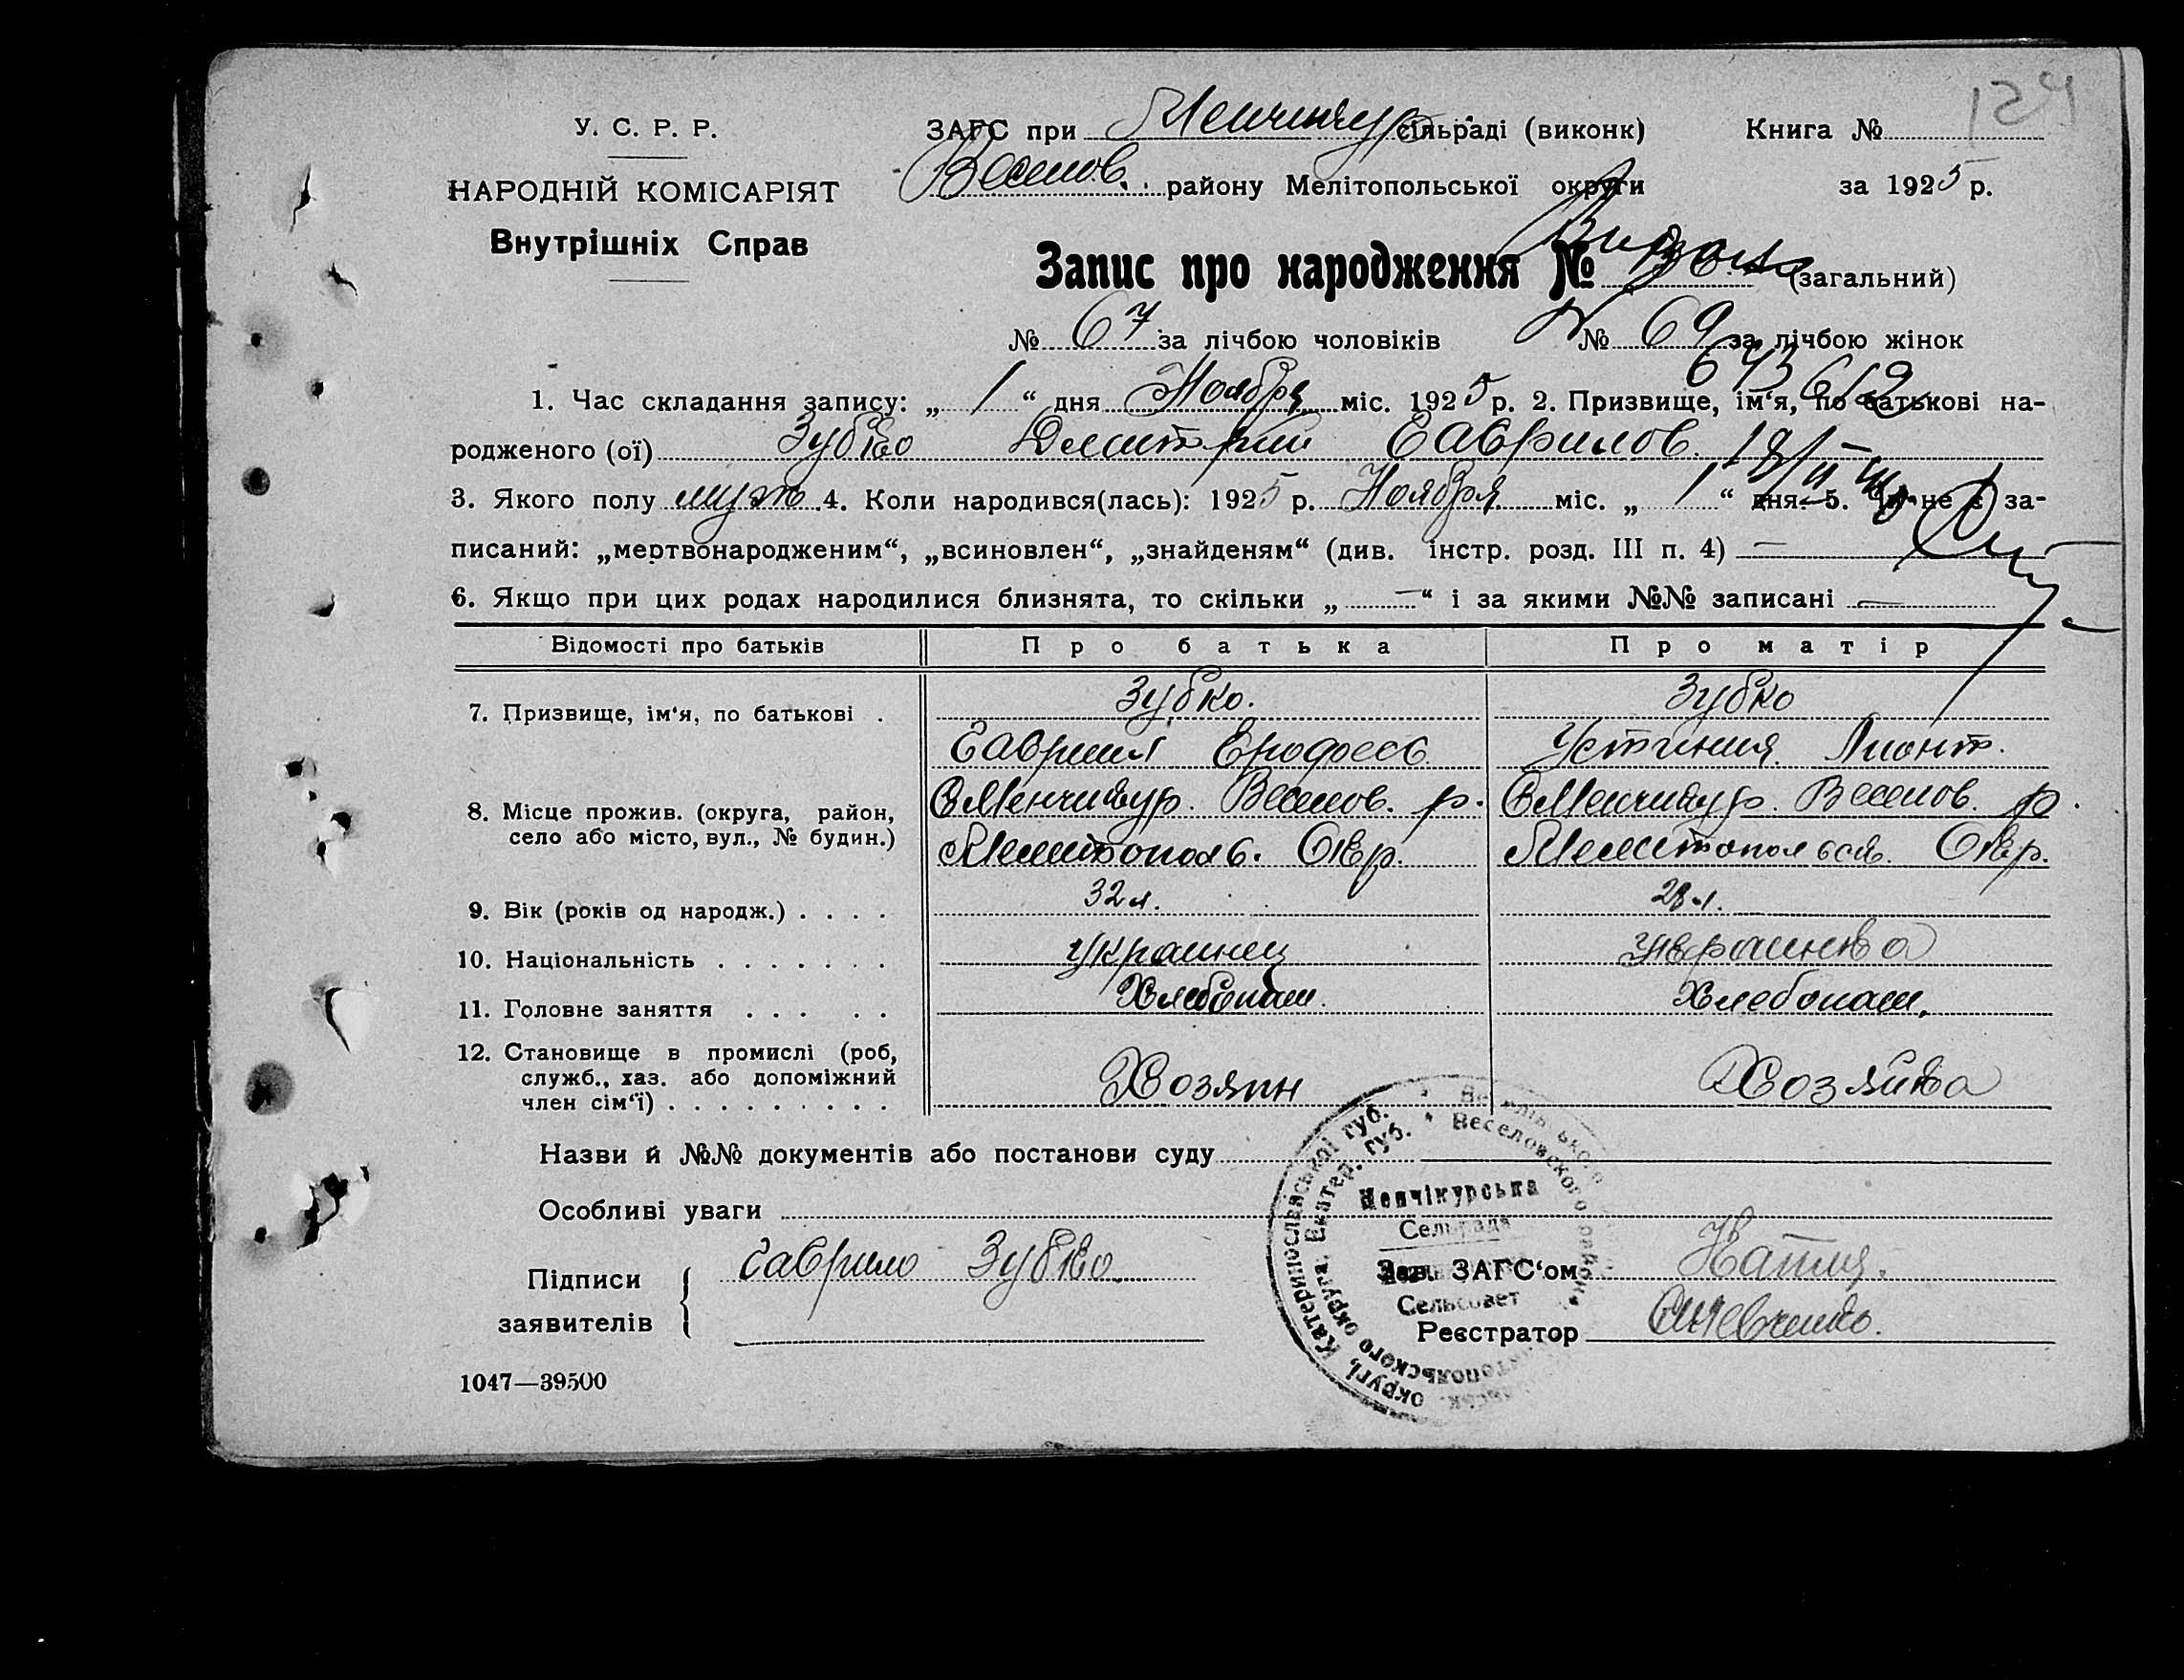 124
У. С. Р. Р.
НАРОДНІЙ КОМІСАРІЯТ
Внутрішніх Справ
ЗАГС при Менчикур. сільраді (виконк) Книга №
Веселов. району Мелітопольської округи за 1925 р.
Запис про народження № (загальний)
№ 67 за лічбою чоловіків № 69 за лічбою жінок
1. Час складання запису: „ 1 “ дня Ноября міс. 1925 р. 2. Призвище, ім‘я, по батькові на-
родженого (ої) Зубко Дмитрий Гаврилов.
3. Якого полу муж. 4. Коли народився(лась): 1925 р. Ноября міс. „ 1 “ дня. 5. Чи не є за-
писаний: „мертвонародженим“, „всиновлен“, „знайденям“ (див. інстр. розд. III п. 4) —
6. Якщо при цих родах народилися близнята, то скільки „ — “ і за якими №№ записані —
Відомості про батьків Про батька Про матір
7. Призвище, ім‘я, по батькові . Зубко. Зубко
Гавриил Ерофеев. Устиния Лионт.
8. Місце прожив. (округа, район, С Менчикур. Веселов. р. С Менчикур. Веселов. р.
село або місто, вул., № будин.) Мелитопол б. Окр. Мелитопол ьск. Окр.
9. Вік (років од народж.) . . . . 32 л. 28 л.
10. Національність . . . . . . . украинец украинка
11. Головне заняття . . . . . Хлебопаш. Хлебопаш.
12. Становище в промислі (роб,
служб., хаз. або допоміжний Хозяин Хозяйка
член сім‘ї) . . . . . . . . .
Назви й №№ документів або постанови суду
Особливі уваги
Підписи Гаврило Зубко. Зав. ЗАГС‘ом
заявителів Реєстратор
Менчікурська
Сельрада
Сельсовет
округі, Катеринославської губ.
Мелитопольского округа. Екатер. губ. * Веселовского район.
1047—39500